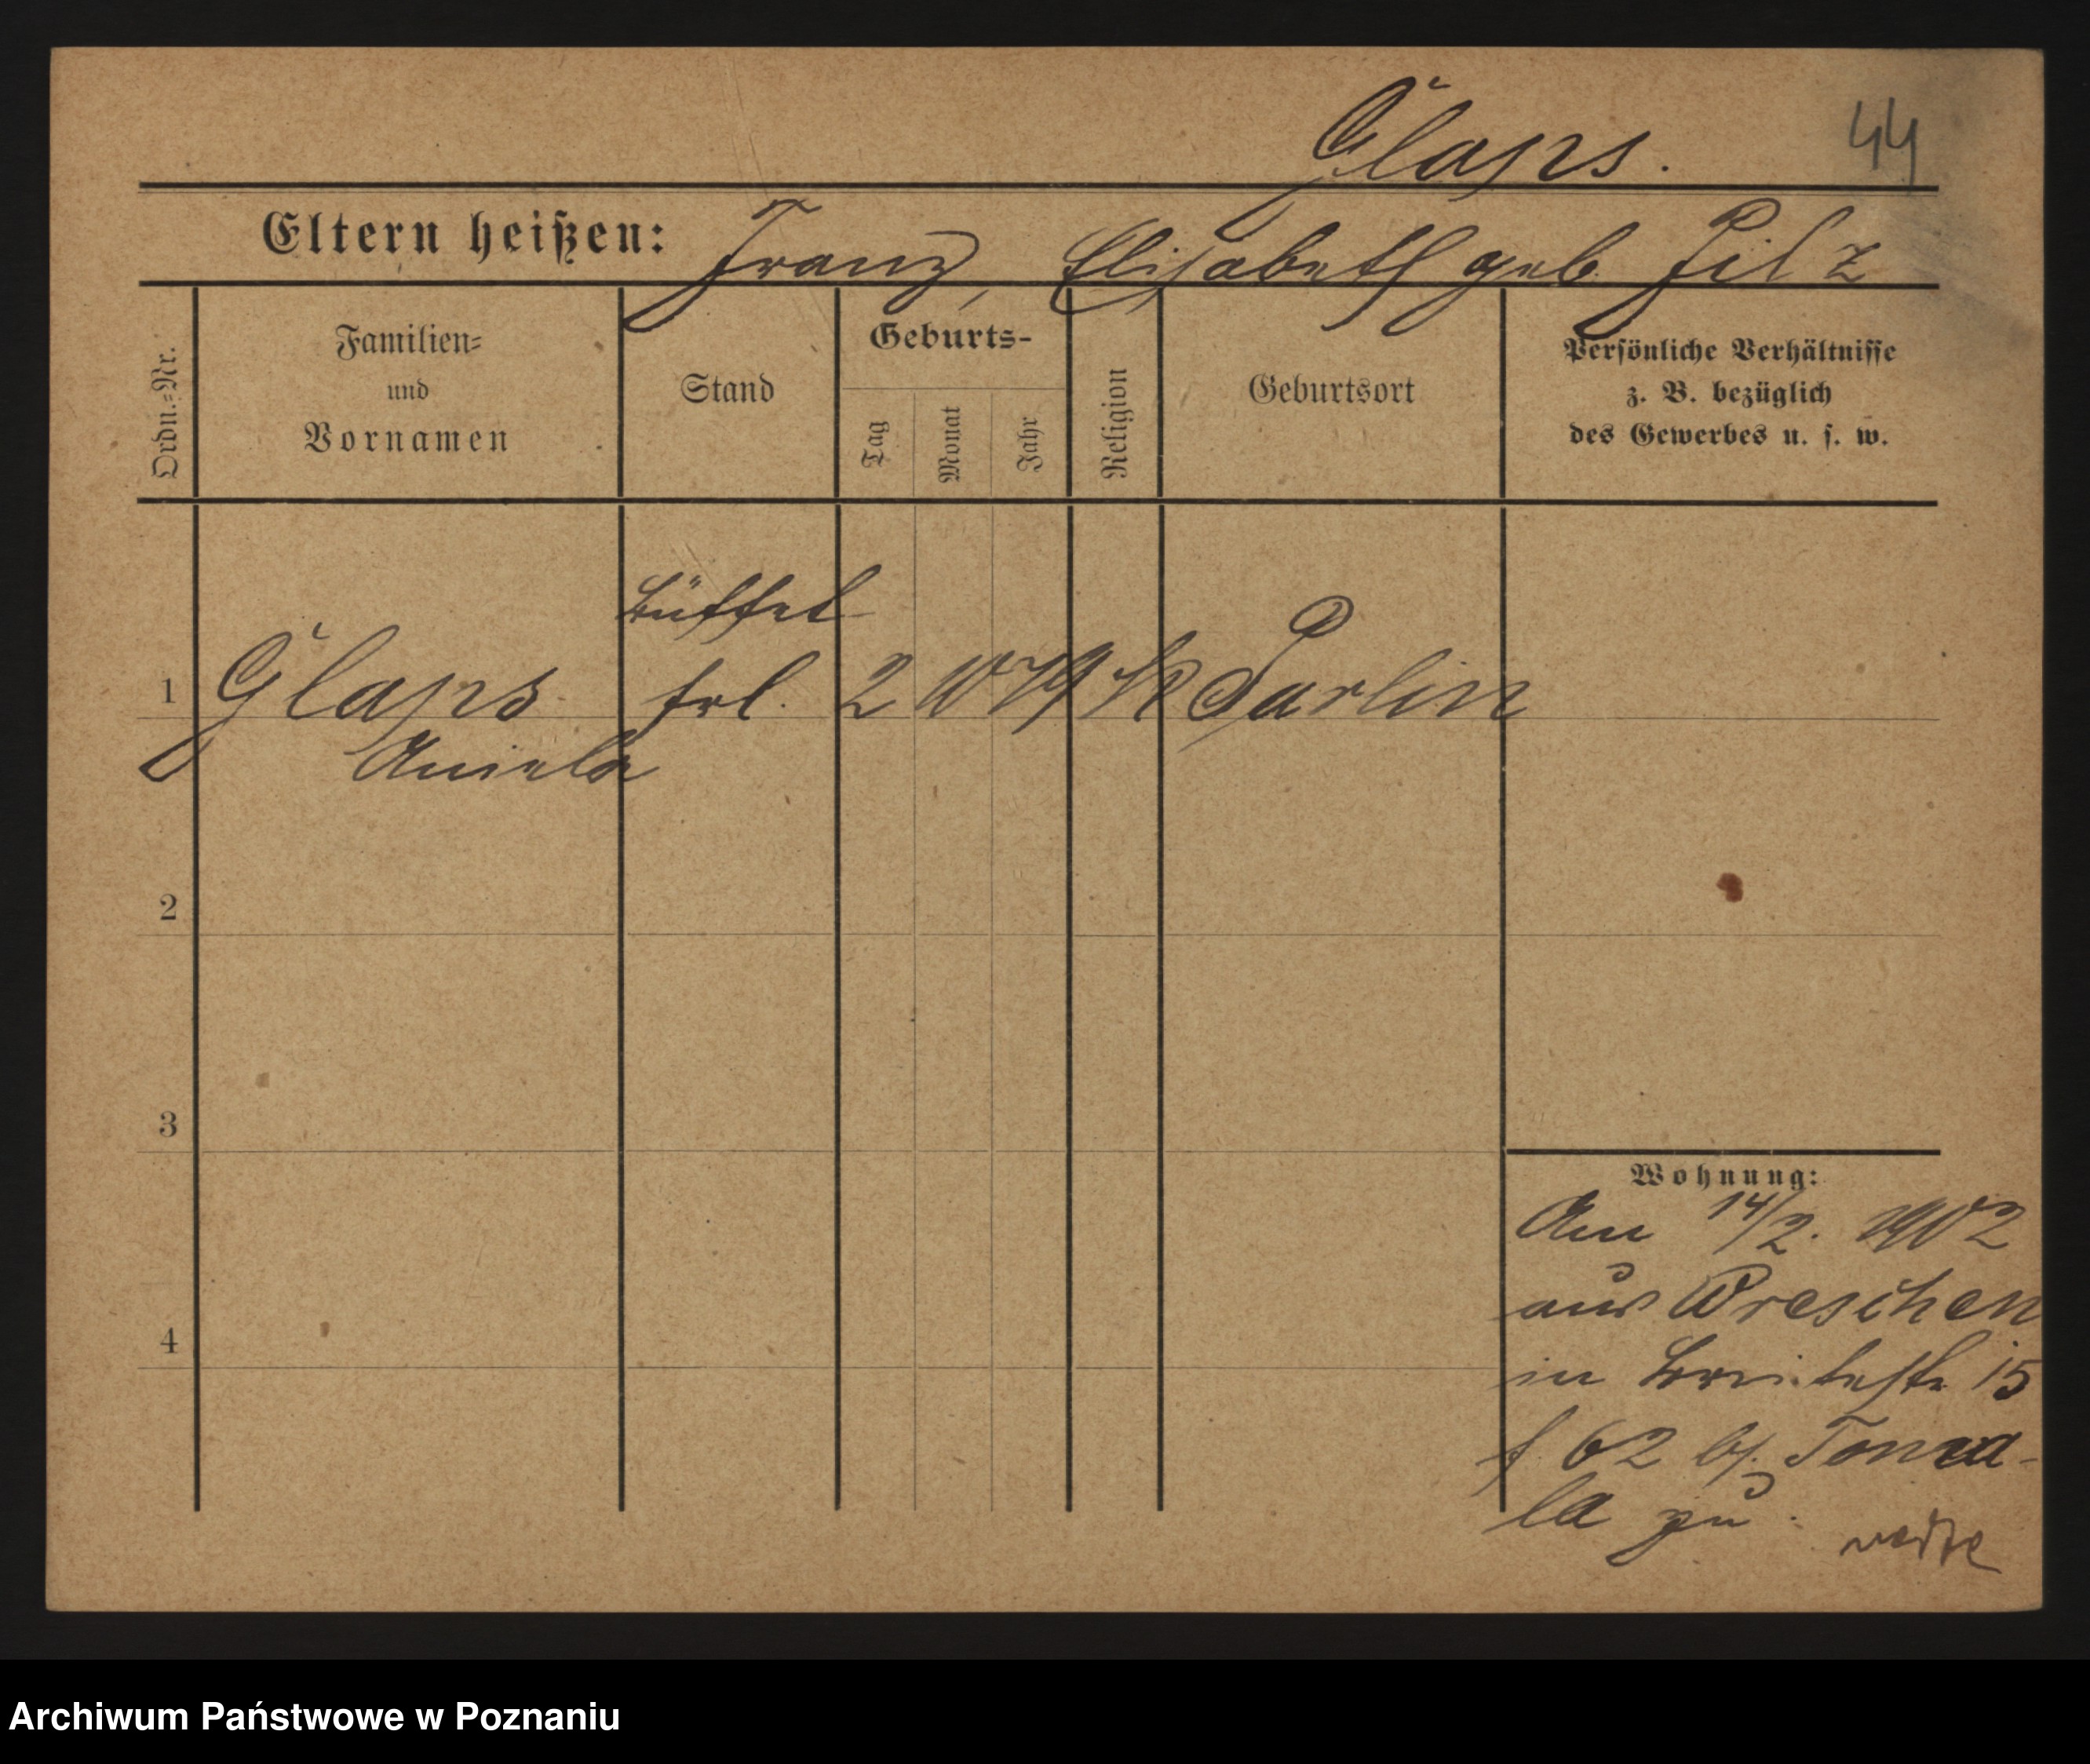 Glaps.
44
Eltern heißen: Franz, Elisabeth geb. Pilz
Ordn.=Nr.
Familien=
und
Vornamen
Stand
Geburts-
Tag
Monat
Jahr
Religion
Geburtsort
Persönliche Verhältnisse
z. B. bezüglich
des Gewerbes u. s. w.
Büffet
1 Glaps frl. 2 10 79 K Parlin
Aniela
2
3
4
Wohnung:
Am 14/2. 1902
aus Wreschen
in Breitestr 15
b/. Tomca-
la zu.
Archiwum Państwowe w Poznaniu